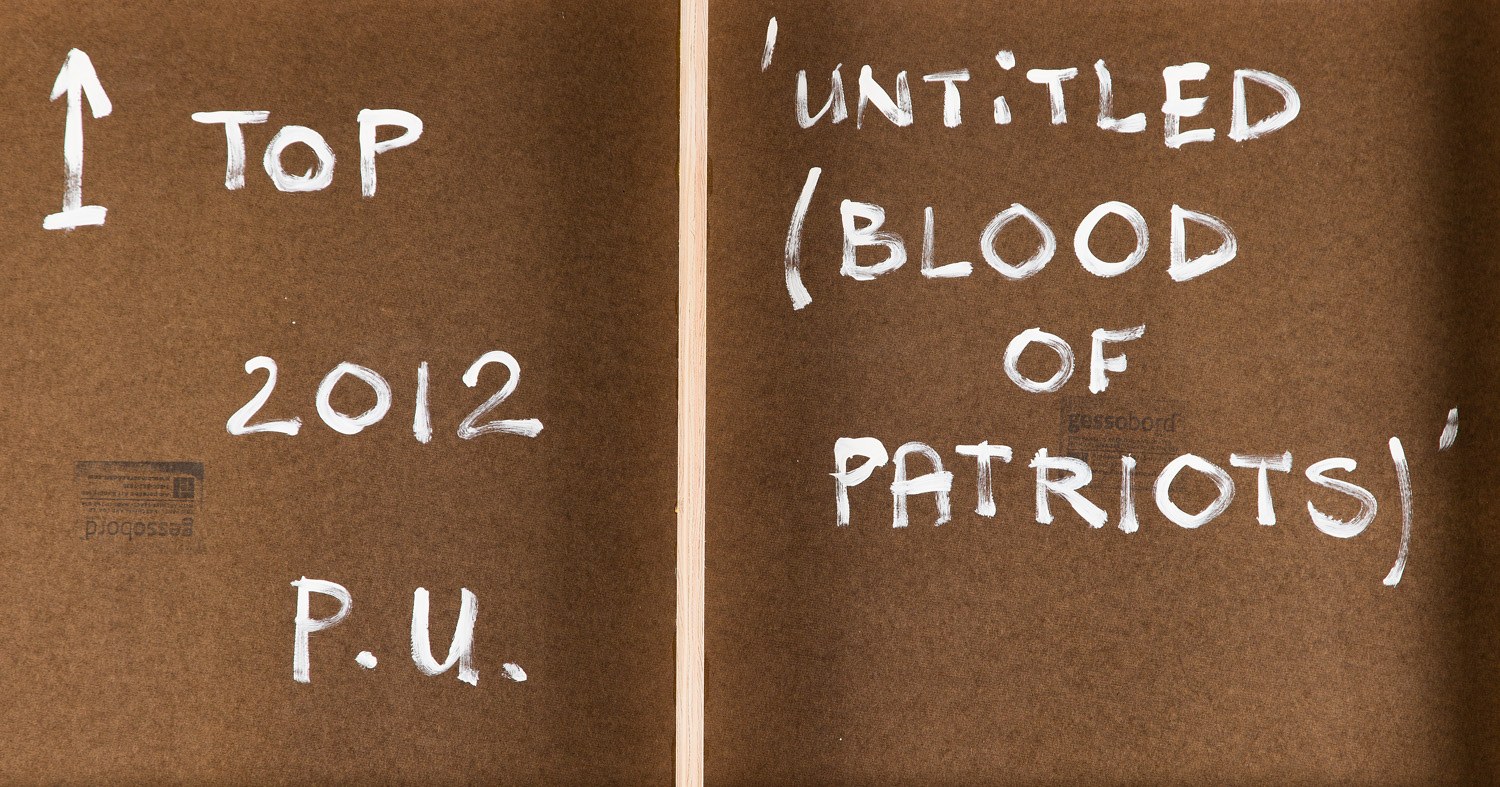 ↑ TOP
2012
gessobord
P.U.
'UNTiTLED
(BLOOD
OF
gessobord
PATRIOTS)'